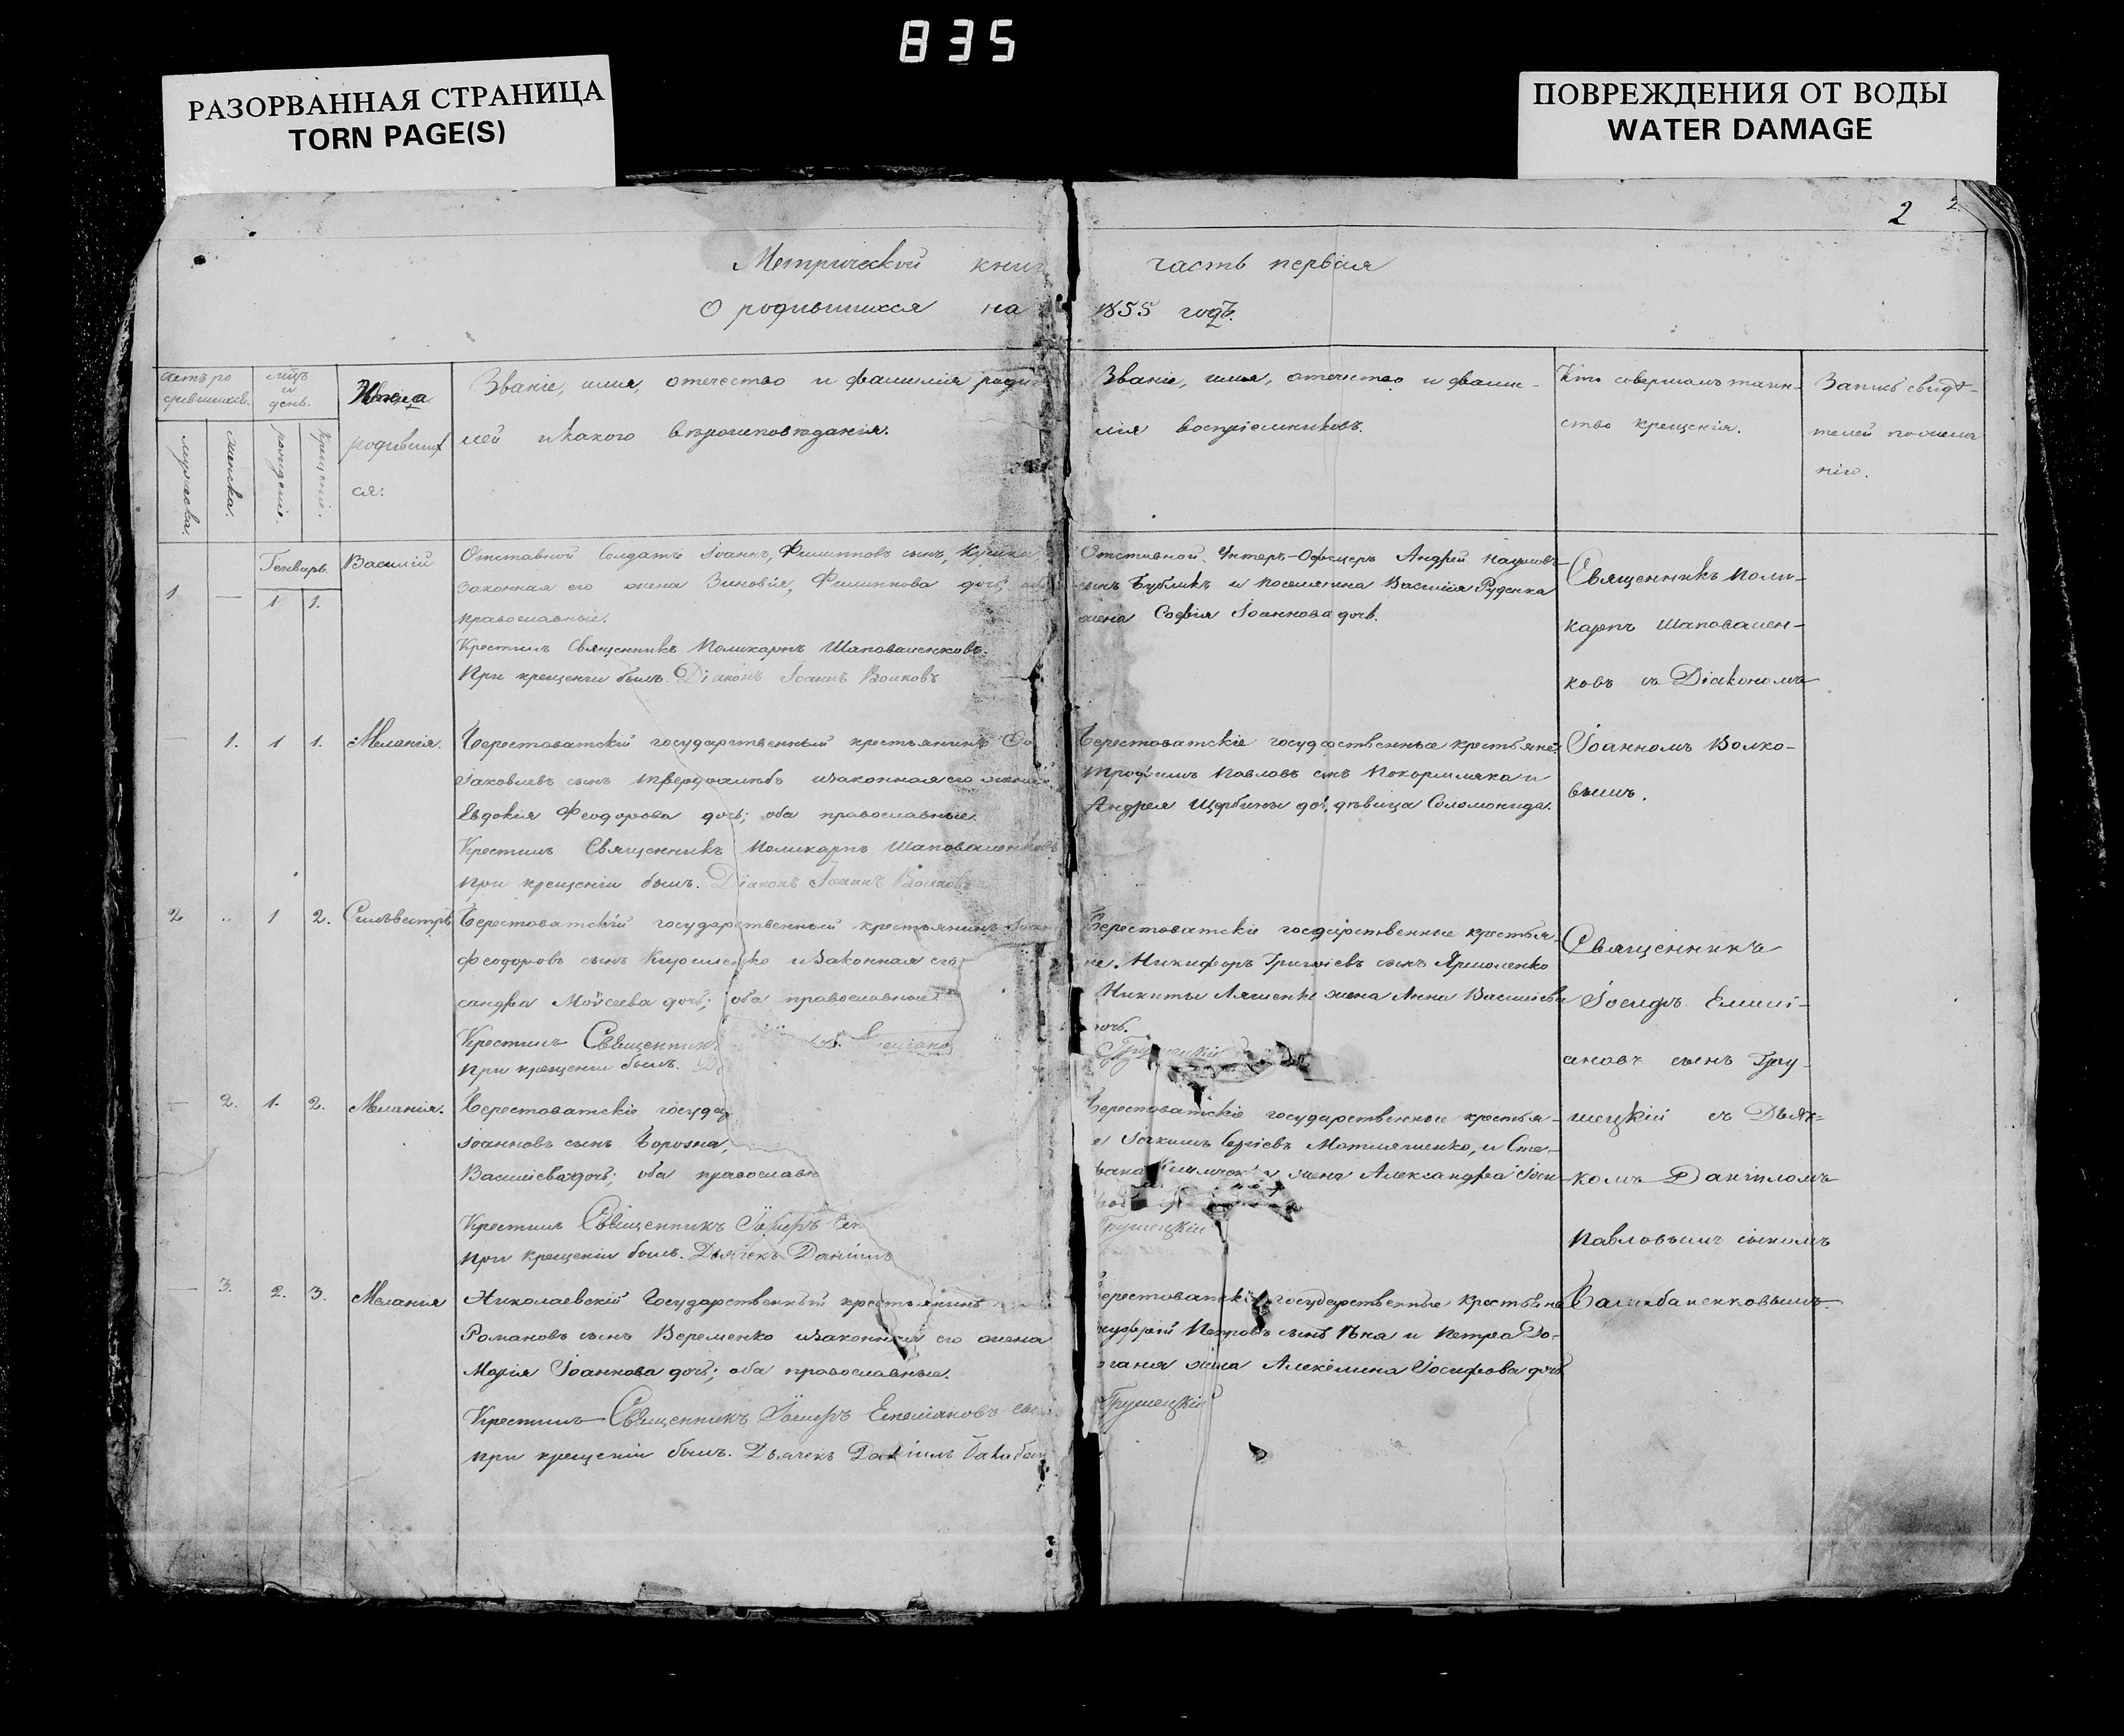 835
РАЗОРВАННАЯ СТРАНИЦА
TORN PAGE(S)
ПОВРЕЖДЕНИЯ ОТ ВОДЫ
WATER DAMAGE
2
2
Метрической книг
О родившихся на
часть первая
1855 годъ.
мужеска.
женска.
рожденіе.
крещеніе.
Имена
родивших
ся:
Званіе, имя, отечество и фамилія роди
лей и какого вѣроисповѣданія.
Званіе, имя, отчество и фами-
лія воспріемниковъ.
Кто совершалъ таин-
ство крещенія.
Запись свидѣ-
телей по жела
нію.
Генварь.
1 — 1 1. Василій
Отставной Солдатъ Іоаннъ, Филипповъ сынъ,
Законная его жена Зиновія, Филиппова дочь,
православные.
Крестилъ Священникъ Поликарпъ Шаповаленковъ.
При крещеніи былъ. Діаконъ Іоаннъ Волковъ
Отставной Унтеръ-Офицеръ Андрей Наумовъ
сынъ Бубликъ и поселянина Василія Руденка
жена Софія Іоаннова дочь.
Священникъ Поли-
карпъ Шаповален-
ковъ съ Діакономъ
Іоанномъ Волко-
вымъ.
— 1. 1 1. Меланія.
Берестоватскій государственный крестьянинъ
Іаковлевъ сынъ Твердохлѣбъ и законная его жена
Евдокія Феодорова дочь; оба православные.
Крестилъ Священникъ Поликарпъ Шаповаленковъ
при крещеніи былъ. Діаконъ Іоаннъ Волковъ
Берестоватскіе государственные крестьяне:
Трофимъ Павловъ сынъ и
Андрея Щербины дочь, дѣвица Соломонида.
2 .. 1 2. Сильвестръ
Берестоватскій государственный крестьянинъ
Феодоровъ сынъ Кириленко и Законная его
сандра Мойсеева дочь; оба православные
Крестилъ Священникъ
при крещеніи былъ.
Берестоватскіе государственные крестья-
не. Никифоръ Григоріевъ сынъ Ярмоленко
Никиты Ляшенка жена Анна Василіева
дочь.
Священникъ
Іосифъ Емилі-
ановъ сынъ Гру-
шецкій съ Дьяч-
комъ Даніиломъ
Павловымъ сыномъ
— 2. 1. 2. Меланія.
Берестоватскіе госуда
Іоанновъ сынъ Борозна,
Василіева дочь; оба православ
Крестилъ Священникъ Іосифъ
при крещеніи былъ. Дьячекъ Даніилъ
Берестоватскіе государственные крестья-
Іоакимъ Сергіевъ и Сте-
жена Александра
Грушецкій
— 3. 2. 3. Меланія
Николаевскій Государственный крестьянинъ
Романовъ сынъ Веременко и законная его жена
Марія Іоаннова дочь; оба православные.
Крестилъ Священникъ Іосифъ Емеліановъ
при крещеніи былъ. Дьячекъ Даніилъ
государственные крестьяне
Петровъ сынъ и Петра До-
жена Іосифова дочь
Грушецкій